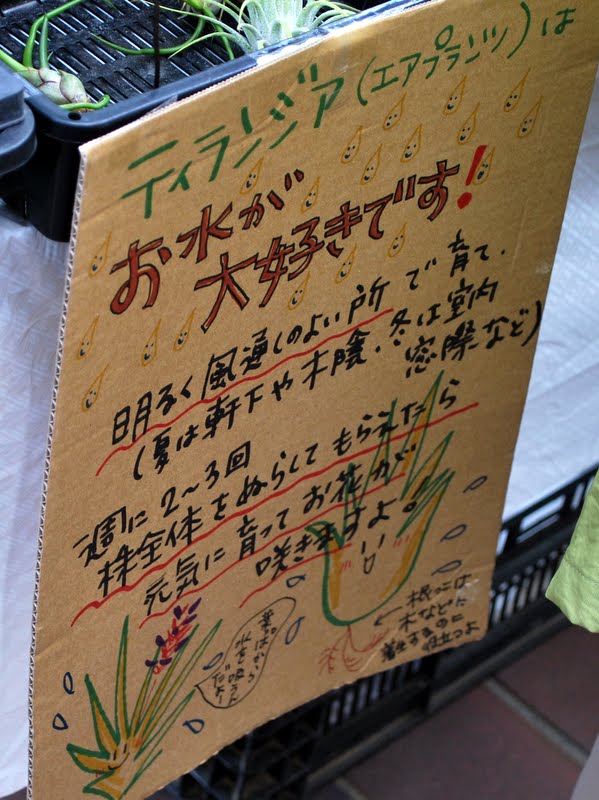 ティランジア(エアプランツ)は
お水が
大好きです!
明るく風通しのよい所で育て、
(夏は軒下や木陰、冬は室内
窓際など)
週に2〜3回
株全体をぬらしてもらえたら
元気に育ってお花が
咲きますよ。
←根っこは
木などに
着生するのに
役立つよ
葉っぱから
水を吸うん
だよ!